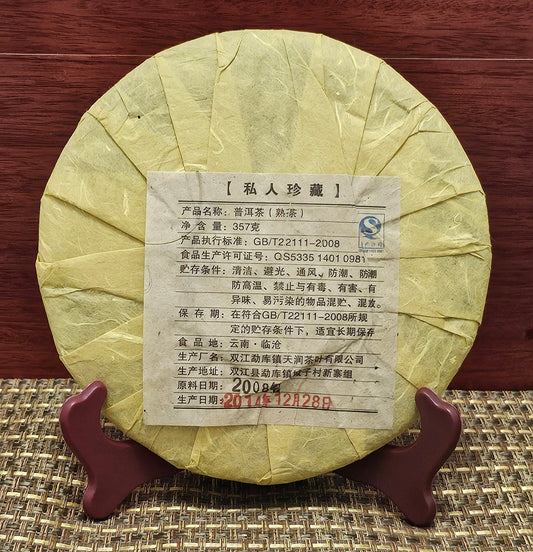 【私人珍藏】
产品名称：普洱茶（熟茶）
净 含 量：357克
产品执行标准：GB/T22111-2008
食品生产许可证号：QS5335 1401 0981
贮存条件：清洁、避光、通风、防潮、防潮
防高温、禁止与有毒、有害、有
异味、易污染的物品混贮、混放。
保 存 期：在符合GB/T22111-2008所规
定的贮存条件下，适宜长期保存
食 品 地：云南·临沧
生产厂名：双江勐库镇天润茶叶有限公司
生产地址：双江县勐库镇坝子村新寨组
原料日期：2008年
生产日期：2014年12月28日